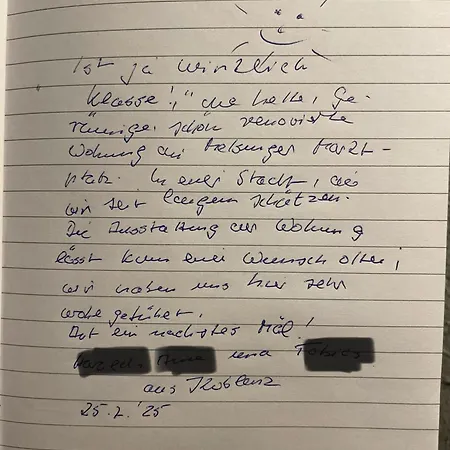 Ist ja wirklich
Klasse!, die helle, ge-
räumige, schön renovierte
Wohnung am Freiburger Marzt-
platz. In einer Stadt, die
wir seit langem schätzen.
Die Ausstattung der Wohnung
lässt kaum einen Wunsch offen;
wir haben uns hier sehr
wohl gefühlt.
Auf ein nächstes Mal!
und
aus Koblenz
25.2.'25